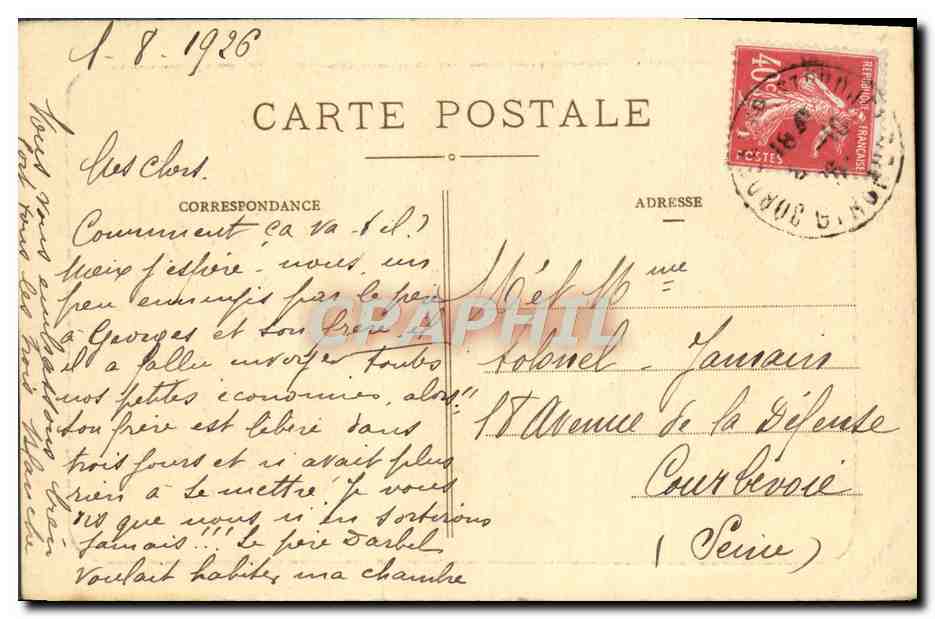 1-8-1926
CARTE POSTALE
Mes chers.
CORRESPONDANCE
Comment ça va-t-il?
Mieix j'espère - nous, un
peu ennuyés par le père
à Georges et son frère et
il a fallu envoyer toutes
nos petites économies, alors!!
son frère est libéré dans
trois jours et n'avait plus
rien à se mettre. Je vous
dis que nous n'en sortirons
jamais!!! Le père Darbel
voulait habiter ma chambre
Nous vous embrassons bien
fort tous les trois Blanche
ADRESSE
Mr et Mme
Colonel - Jamain
18 Avenue de la Défense
Courbevoie
(Seine)
REPUBLIQUE FRANCAISE
40c
POSTES
CPAPHIL